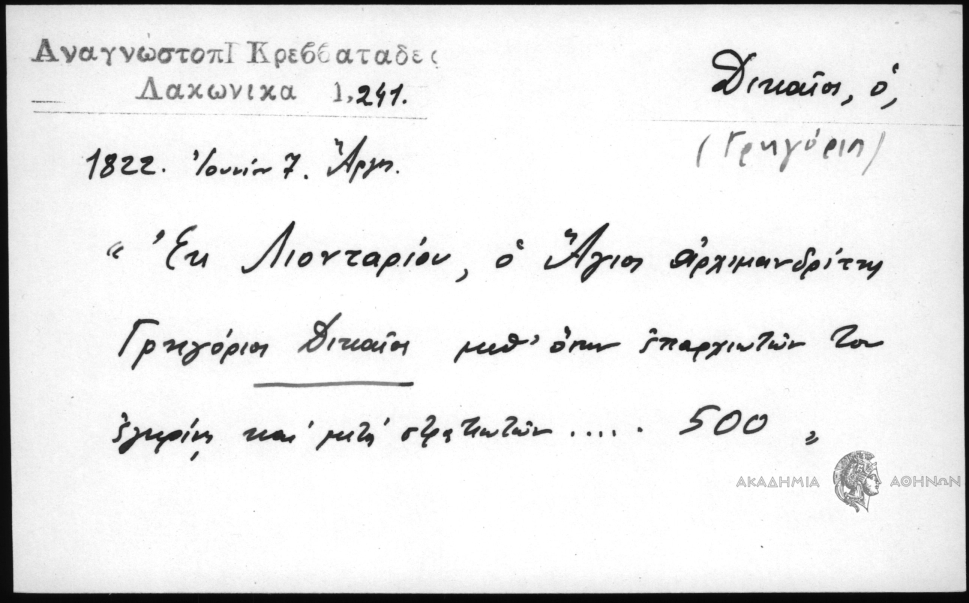 Αναγνωστοπ Κρεββαταδες
Λακωνικα 1,241.
Δικαῖος, ὁ,
(Γρηγόριος)
1822. Ἰουνίου 7. Ἄργος.
“ Ἐκ Λιονταρίου, ὁ Ἅγιος ἀρχιμανδρίτης
Γρηγόριος Δικαῖος μεθ' ὅλων ἐπαρχιωτῶν του
καὶ μετὰ στρατιωτῶν ..... 500 „
ΑΚΑΔΗΜΙΑ ΑΘΗΝΩΝ